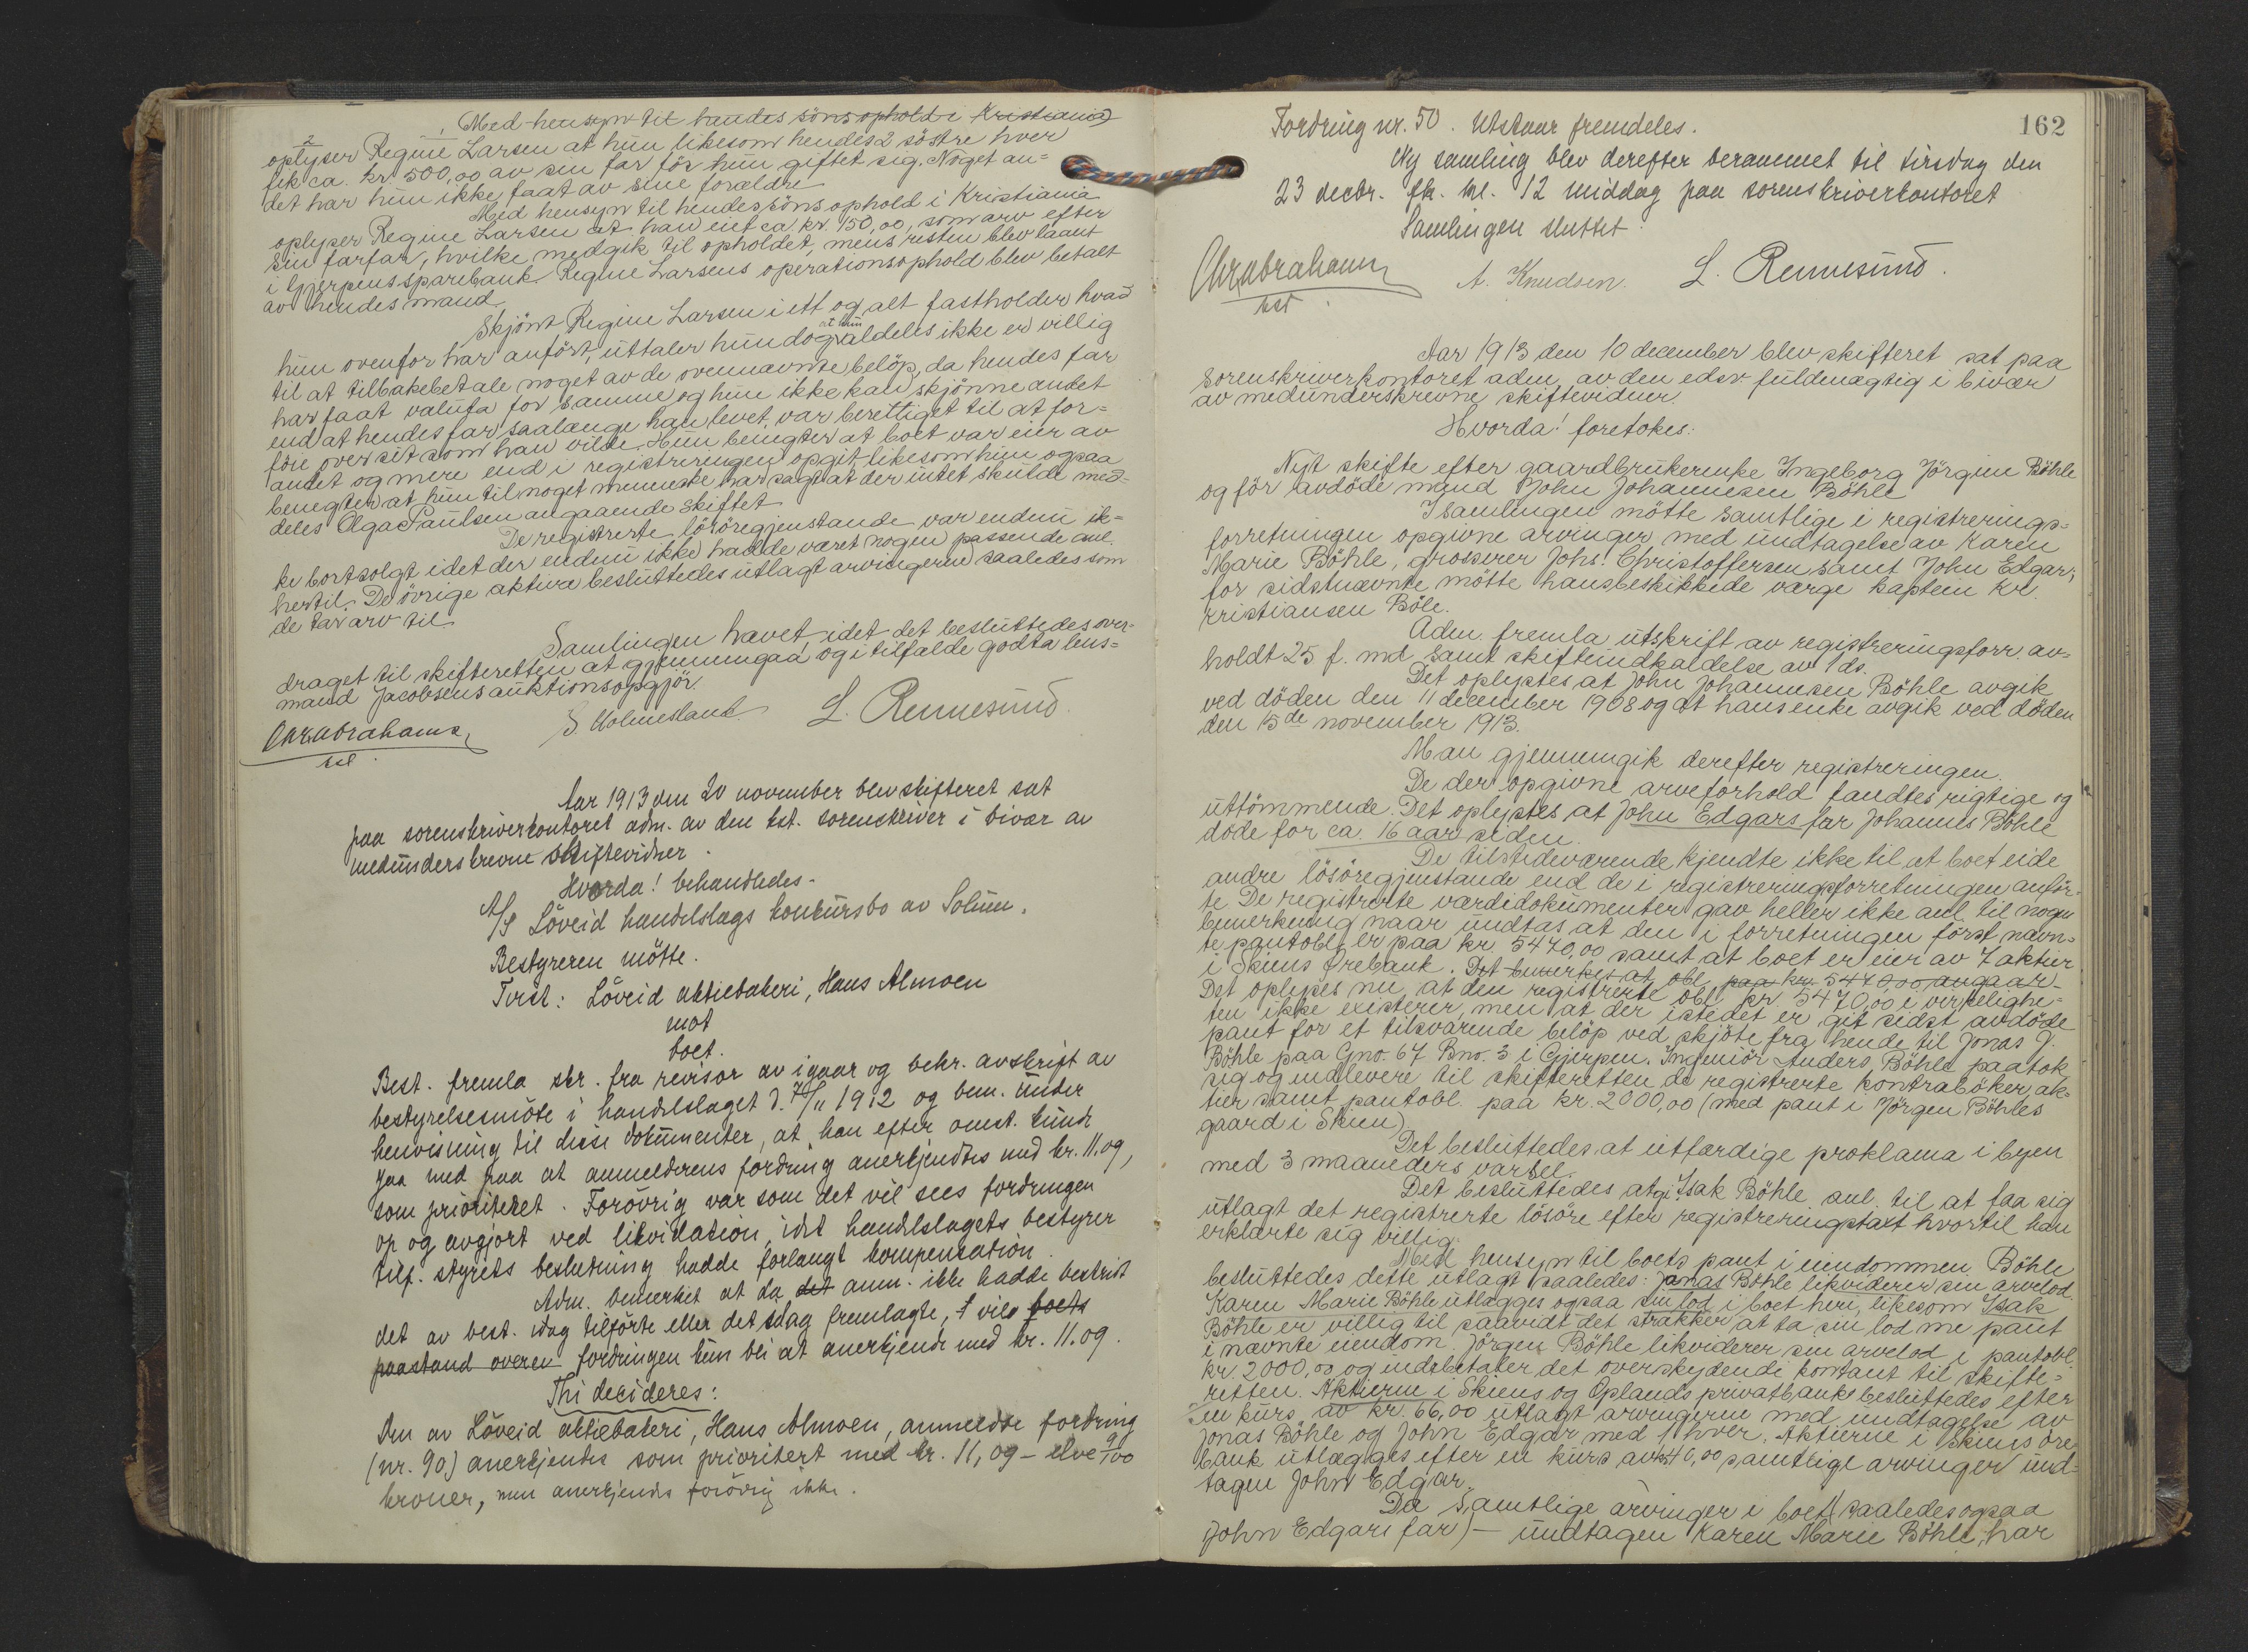 Med hensyn til hendes söns ophold i Kristiania
oplyser Regine Larsen at hun likesom hendes 2 söstre hver
fik ca. kr 500,00 av sin far för hun giftet sig. Noget an=
det har hun ikke faat av sine forældre
Med hensyn til hendes söns ophold i Kristiania
oplyser Regine Larsen at han eiet ca. kr. 150,00, som arv efter
sin farfar, hvilke medgik til opholdet, mens resten blev laant
i Gjerpens sparebank. Regine Larsens operationsophold blev betalt
av hendes mand.
Skjönt Regine Larsen i ett og alt fastholder hvad
hun ovenfor har anfört, uttaler hun dog at hun aldeles ikke er villig
til at tilbakebetale noget av de ovennævnte belöp, da hendes far
har faat valuta for samme og hun ikke kan skjönne andet
end at hendes far saalænge han levet, var berettiget til at for=
föie over sit som han vilde. Hun benegter at boet var eier av
andet og mere end i registreringen opgit likesom hun ogsaa
benegter at hun til noget menneske har sagt at der intet skulde med=
deles Olga Paulsen angaaende skiftet.
De registrerte lösöregjenstande var endnu ik=
ke bortsolgt idet der endnu ikke hadde været nogen passende anl.
hertil. De övrige aktiva besluttedes utlagt arvingerne saaledes som
de tar arv til
Samlingen hævet, idet det besluttedes over-
draget til skifteretten at gjennemgaa og i tilfælde godta lens=
mand Jacobsens auktionsopgjör.
Chr. Abrahams. S Holmesland L. Rennesund.
kst.
Aar 1913 den 20 november blev skifteret sat
paa sorenskriverkontoret adm. av den kst. sorenskriver i bivær av
medunderskrevne skiftevidner.
Hvorda! behandledes.
A/S Löveid handelslags konkursbo av Solum.
Bestyreren mötte.
Tvist: Löveid aktiebakeri, Hans Almoen
mot
boet.
Best. fremla skr. fra revisor av igaar og bekr. avskrift av
bestyrelsesmöte i handelslaget d. 7/11 1912 og bem. under
henvisning til disse dokumenter, at han efter omst. kunde
gaa med paa at anmelderens fordring anerkjendtes med kr. 11.09,
som prioritetet. Forövrig var som det vil sees fordringen
op og avgjort ved likvidation, idet handelslagets bestyrer
tilf. styrets beslutning hadde forlangt kompensation.
Adm. bemerket at da det anm. ikke hadde bestridt
det av best. idag tilförte eller det idag fremlagte, vil boets
paastand overen fordringen kun bli at anerkjende med kr. 11.09.
Thi decideres:
Den av Löveid aktiebakeri, Hans Almoen, anmeldte fordring
(nr. 90) anerkjendes som prioritert med kr. 11,09 – elve 9/100
kroner, men anerkjendes forövrig ikke.
162
Fordring nr. 50. Utstaar fremdeles.
Ny samling blev derefter berammet til tirsdag den
23 decbr. fk. kl. 12 middag paa sorenskriverkontoret
Samlingen sluttet.
Chr. Abrahams A. Knudsen. L. Rennesund.
kst.
Aar 1913 den 10 december blev skifteret sat paa
sorenskriverkontoret adm. av den edsv. fuldmægtig i bivær
av medunderskrevne skiftevidner.
Hvorda! foretokes:
Nyt skifte efter gaardbrukerenke Ingeborg Jörgine Böhle
og för avdöde mand John Johannesen Böhle
I samlingen mötte samtlige i registrerings=
forretningen opgivne arvinger med undtagelse av Karen
Marie Böhle, grosserer Johs. Christoffersen samt John Edgar;
for sidstnævnte mötte hans beskikkede værge kaptein Kr.
Kristiansen Böle.
Adm. fremla utskrift av registreringsforr. av=
holdt 25 f. md. samt skifteindkaldelse av 1 ds.
Det oplystes at John Johannesen Böhle avgik
ved döden den 11 december 1908 og at hans enke avgik ved döden
den 15de november 1913.
Man gjennemgik derefter registreringen.
De der opgivne arveforhold fandtes rigtige og
uttömmende. Det oplystes at John Edgars far Johannes Böhle
döde for ca. 16 aar siden.
De tilstedeværende kjendte ikke til at boet eide
andre lösöregjenstande end de i registreringsforretningen anför-
te. De registrerte værdidokumenter gav heller ikke anl. til nogen
bemerkning naar undtas at den i forretningen först nævn=
te pantobl. er paa kr. 5470,00 samt at boet er eier av 7 aktier
i Skiens Ørebank. Det bemerkes at obl. paa kr. 5470,00 angaar
Det oplyses nu, at den registrerte obl. kr. 5470,00 i verkelighe=
ten ikke existerer, men at der istedet er git sidst avdöde
pant for et tilsvarende belöp ved skjöte fra hende til Jonas J.
Böhle paa Gno. 67 Bno. 3 i Gjerpen. Ingeniör Anders Böhle paatok
sig og indlevere til skifteretten de registrerte kontraböker, ak=
tier samt pantobl. paa kr. 2000,00 (med pant i Jörgen Böhles
gaard i Skien)
Det besluttedes at utfærdige proklama i byen
med 3 maaneders varsel.
Det besluttedes at gi Isak Böhle anl. til at faa sig
utlagt det registrerte lösöre efter registreringstaxt hvortil han
erklærte sig villig.
Med hensyn til boets pant i eiendommen Böhle
besluttedes dette utlagt saaledes: Jonas Böhle likviderer sin arvelod.
Karen Marie Böhle utlægges ogsaa sin lod i boet heri, likesom Isak
Böhle er villig til saavidt det strækker at ta sin lod me pant
i nævnte eiendom. Jörgen Böhle likviderer sin arvelod i pantobl.
kr. 2000,00 og indbetaler det overskydende kontant til skifte=
retten. Aktierne i Skiens og Oplands privatbank besluttedes efter
en kurs av kr. 66,00 utlagt arvingerne med undtagelse av
Jonas Böhle og John Edgar med 1 hver. Aktierne i Skiens öre
bank utlægges efter en kurs av kr. 40,00 samtlige arvinger und=
tagen John Edgar.
Da samtlige arvinger i boet (saaledes ogsaa
John Edgars far) – undtagen Karen Marie Böhle, har